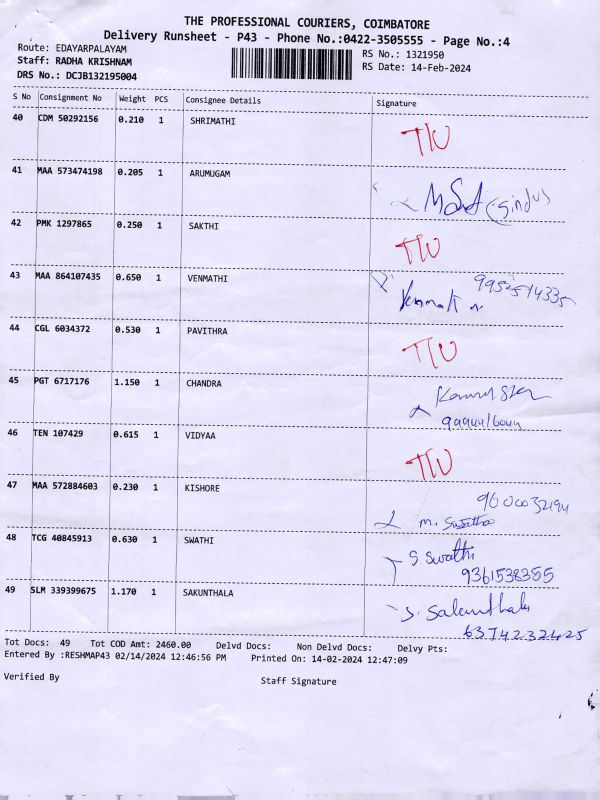 THE PROFESSIONAL COURIERS, COIMBATORE
Delivery Runsheet - P43 - Phone No.:0422-3505555 - Page No.:4
Route: EDAYARPALAYAM
RS No.: 1321950
Staff: RADHA KRISHNAM
RS Date: 14-Feb-2024
DRS No.: DCJB132195004
S No Consignment No Weight PCS Consignee Details Signature
40 CDM 50292156 0.210 1 SHRIMATHI
41 MAA 573474198 0.205 1 ARUMUGAM
42 PMK 1297865 0.250 1 SAKTHI
43 MAA 864107435 0.650 1 VENMATHI
44 CGL 6034372 0.530 1 PAVITHRA
45 PGT 6717176 1.150 1 CHANDRA
46 TEN 107429 0.615 1 VIDYAA
47 MAA 572884603 0.230 1 KISHORE
M. Swatha
48 TCG 40845913 0.630 1 SWATHI S. Swathi
9361538355
49 SLM 339399675 1.170 1 SAKUNTHALA
6374232425
Tot Docs: 49 Tot COD Amt: 2460.00 Delvd Docs: Non Delvd Docs: Delvy Pts:
Entered By :RESHMAP43 02/14/2024 12:46:56 PM Printed On: 14-02-2024 12:47:09
Verified By Staff Signature